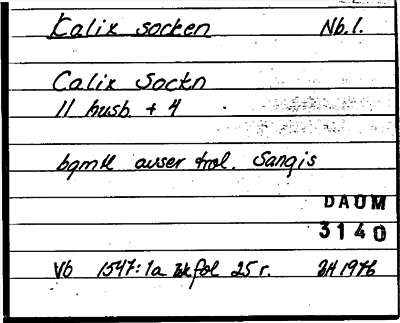 Kalix socken Nb.l.
Calix Sockn
11 husb. + 4
bgmtl avser trol. Sangis
DAUM
3140
Vb 1547:1a fol 25 r. 1976